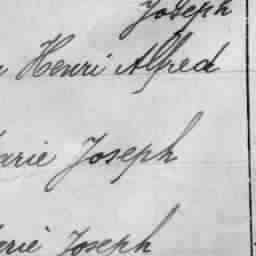 Joseph
Henri Alfred
arie Joseph
arie Joseph